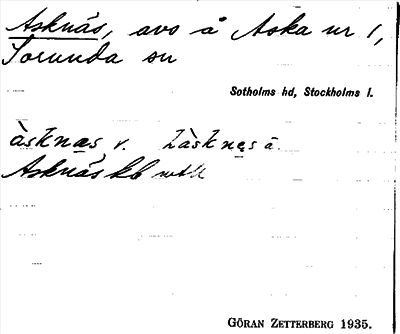 Asknäs, avs å Aska nr 1,
Sorunda sn
Sotholms hd, Stockholms l.
àsknas v. hàsknesä.
Asknäs kb
GÖRAN ZETTERBERG 1935.